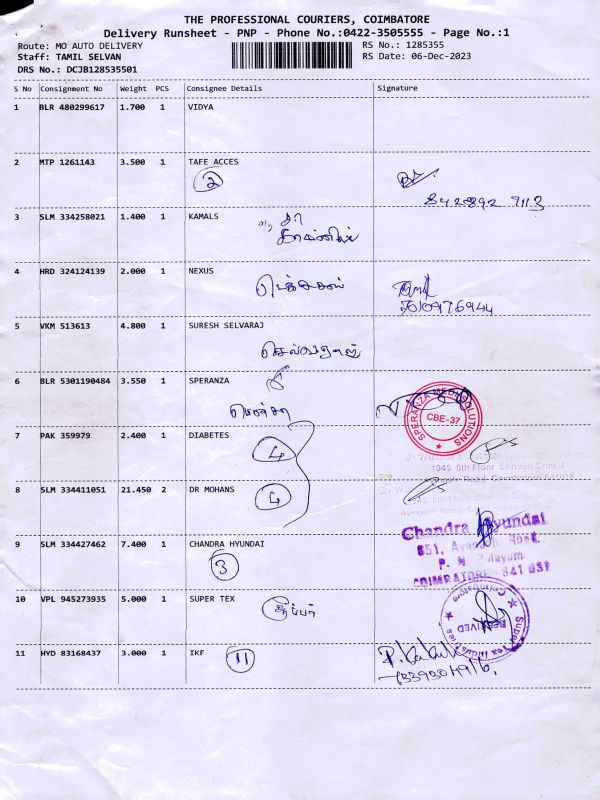 THE PROFESSIONAL COURIERS, COIMBATORE
Delivery Runsheet - PNP - Phone No.:0422-3505555 - Page No.:1
Route: MO AUTO DELIVERY RS No.: 1285355
Staff: TAMIL SELVAN RS Date: 06-Dec-2023
DRS No.: DCJB128535501
S No Consignment No Weight PCS Consignee Details Signature
1 BLR 480299617 1.700 1 VIDYA
2 MTP 1261143 3.500 1 TAFE ACCES
2
842892 7113
3 SLM 334258021 1.400 1 KAMALS
4 HRD 324124139 2.000 1 NEXUS
7010976944
5 VKM 513613 4.800 1 SURESH SELVARAJ
6 BLR 5301190484 3.550 1 SPERANZA
SPERANZA MEDI SOLUTIONS
CBE-37
7 PAK 359979 2.400 1 DIABETES
4
1045 5th Floor
8 SLM 334411051 21.450 2 DR MOHANS
4
9 SLM 334427462 7.400 1 CHANDRA HYUNDAI
3
Chandra Hyundai
851, Avanashi Road,
P. N. Palayam
COIMBATORE - 641 037
10 VPL 945273935 5.000 1 SUPER TEX
சூப்பர்
Super Tex Industries
RECEIVED
Coimbatore
11 HYD 83168437 3.000 1 IKF
11